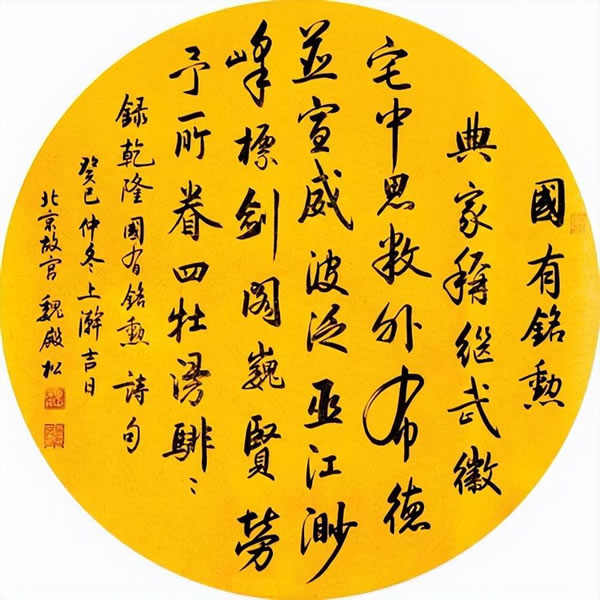 國有銘勲
典家稱继武徽
宅中思敷外布德
並宣威波泛巫江渺
峰標劍閣巍賢勞
予所眷四牡漫騑〻
録乾隆國有銘勲詩句
癸巳仲冬上澣吉日
北京故宮魏殿松